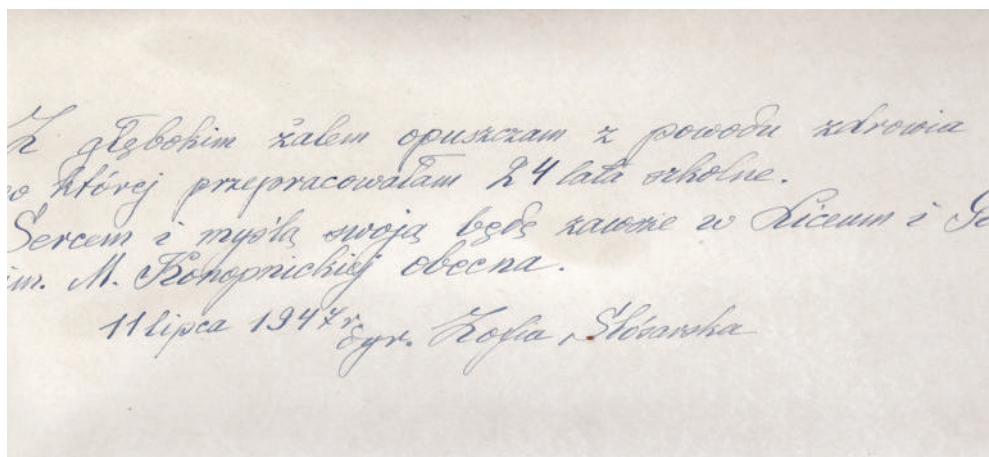 Z głębokim żalem opuszczam z powodu zdrowia
w której przepracowałam 24 lata szkolne.
Sercem i myślą swoją będę zawsze w Liceum i
im. M. Konopnickiej obecna.
11 lipca 1947 r.
dyr. Zofia Ślósarska